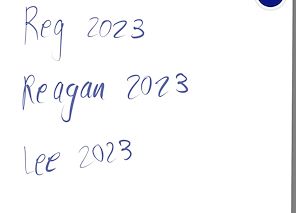 Reg 2023
Reagan 2023
Lee 2023